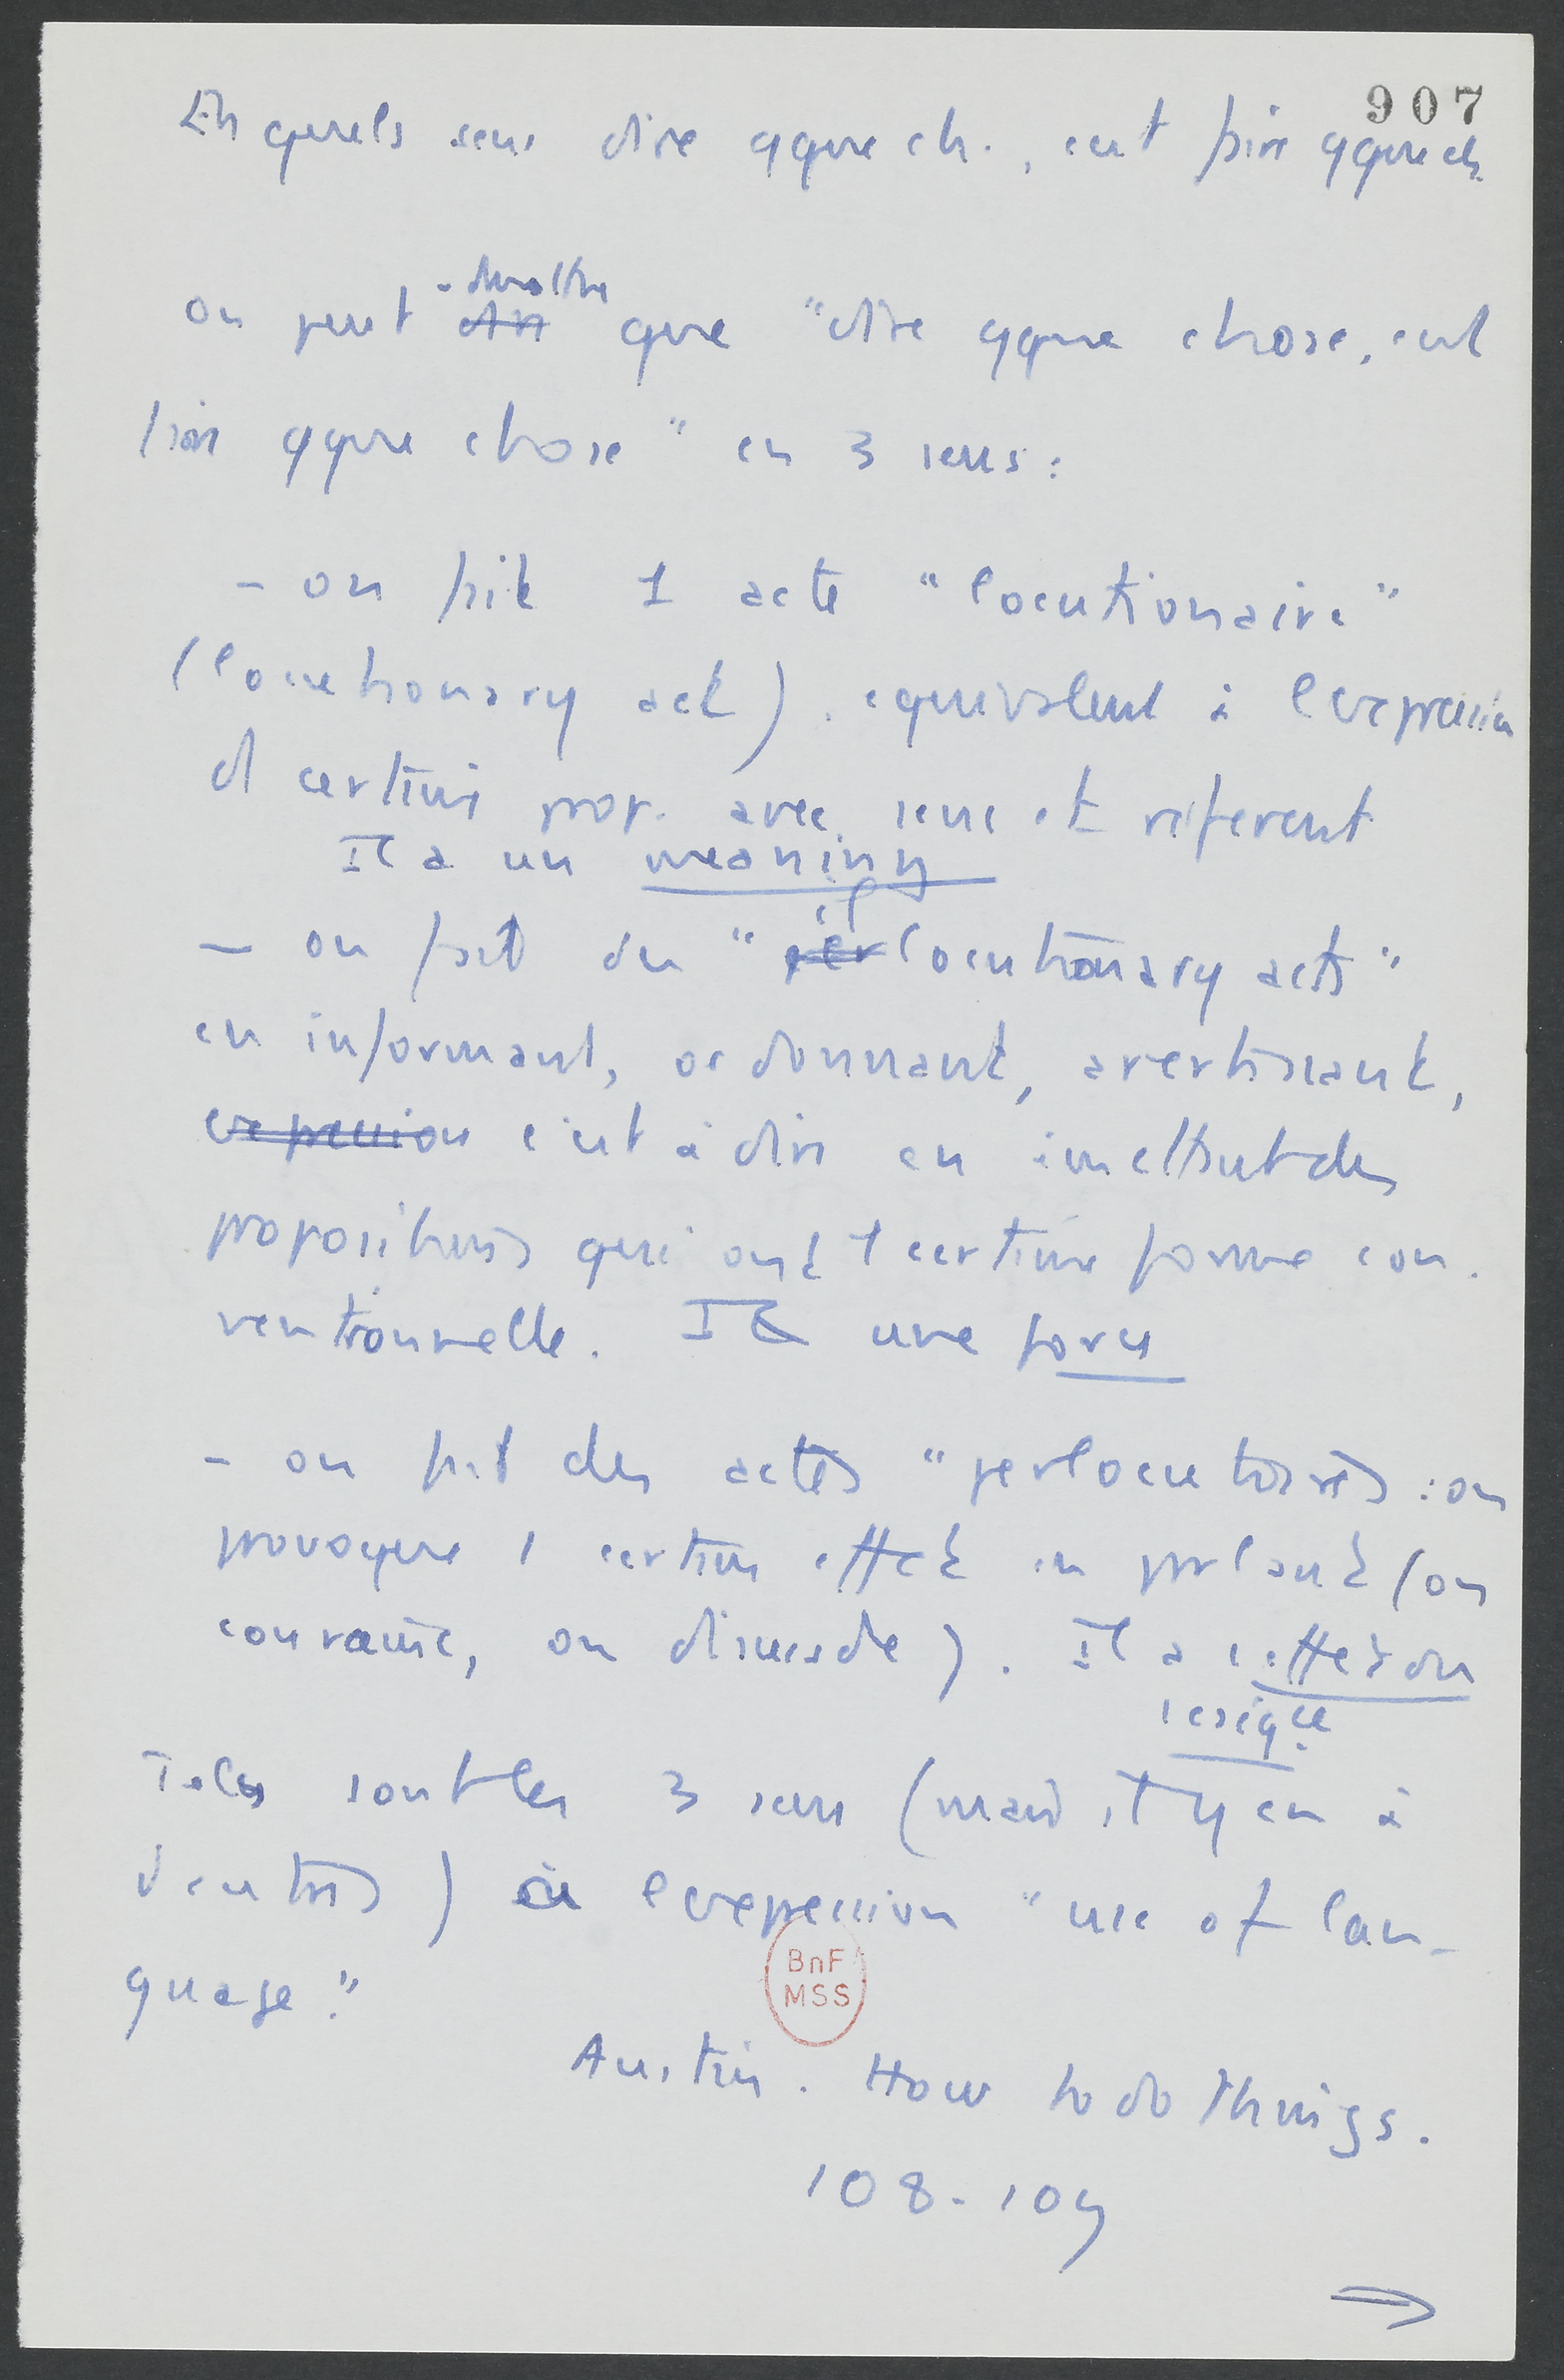 907
En quels sens dire qque ch., c'est faire qque ch.
admettre
on peut dire que "dire qque chose, c'est
faire qque chose" en 3 sens :
- on fait 1 acte "locutionaire"
(locutionary act). équivalent à l'expression
de certaine prop. avec sens et référent
Il a un meaning
il
- on fait des "perlocutionary acts"
en informant, ordonnant, avertissant,
expression c'est à dire en émettant des
propositions qui ont 1 certaine forme con-
ventionnelle. Il a une force
- on fait des actes "perlocutoires : on
provoque 1 certain effet en parlant (on
convainc, on dissuade). Il a 1 effet ou
1 conséqce
Tels sont les 3 sens (mais il y en a
d'autres) de l'expression "use of lan-
guage".
BnF
MSS
Austin. How to do things.
108-109
→